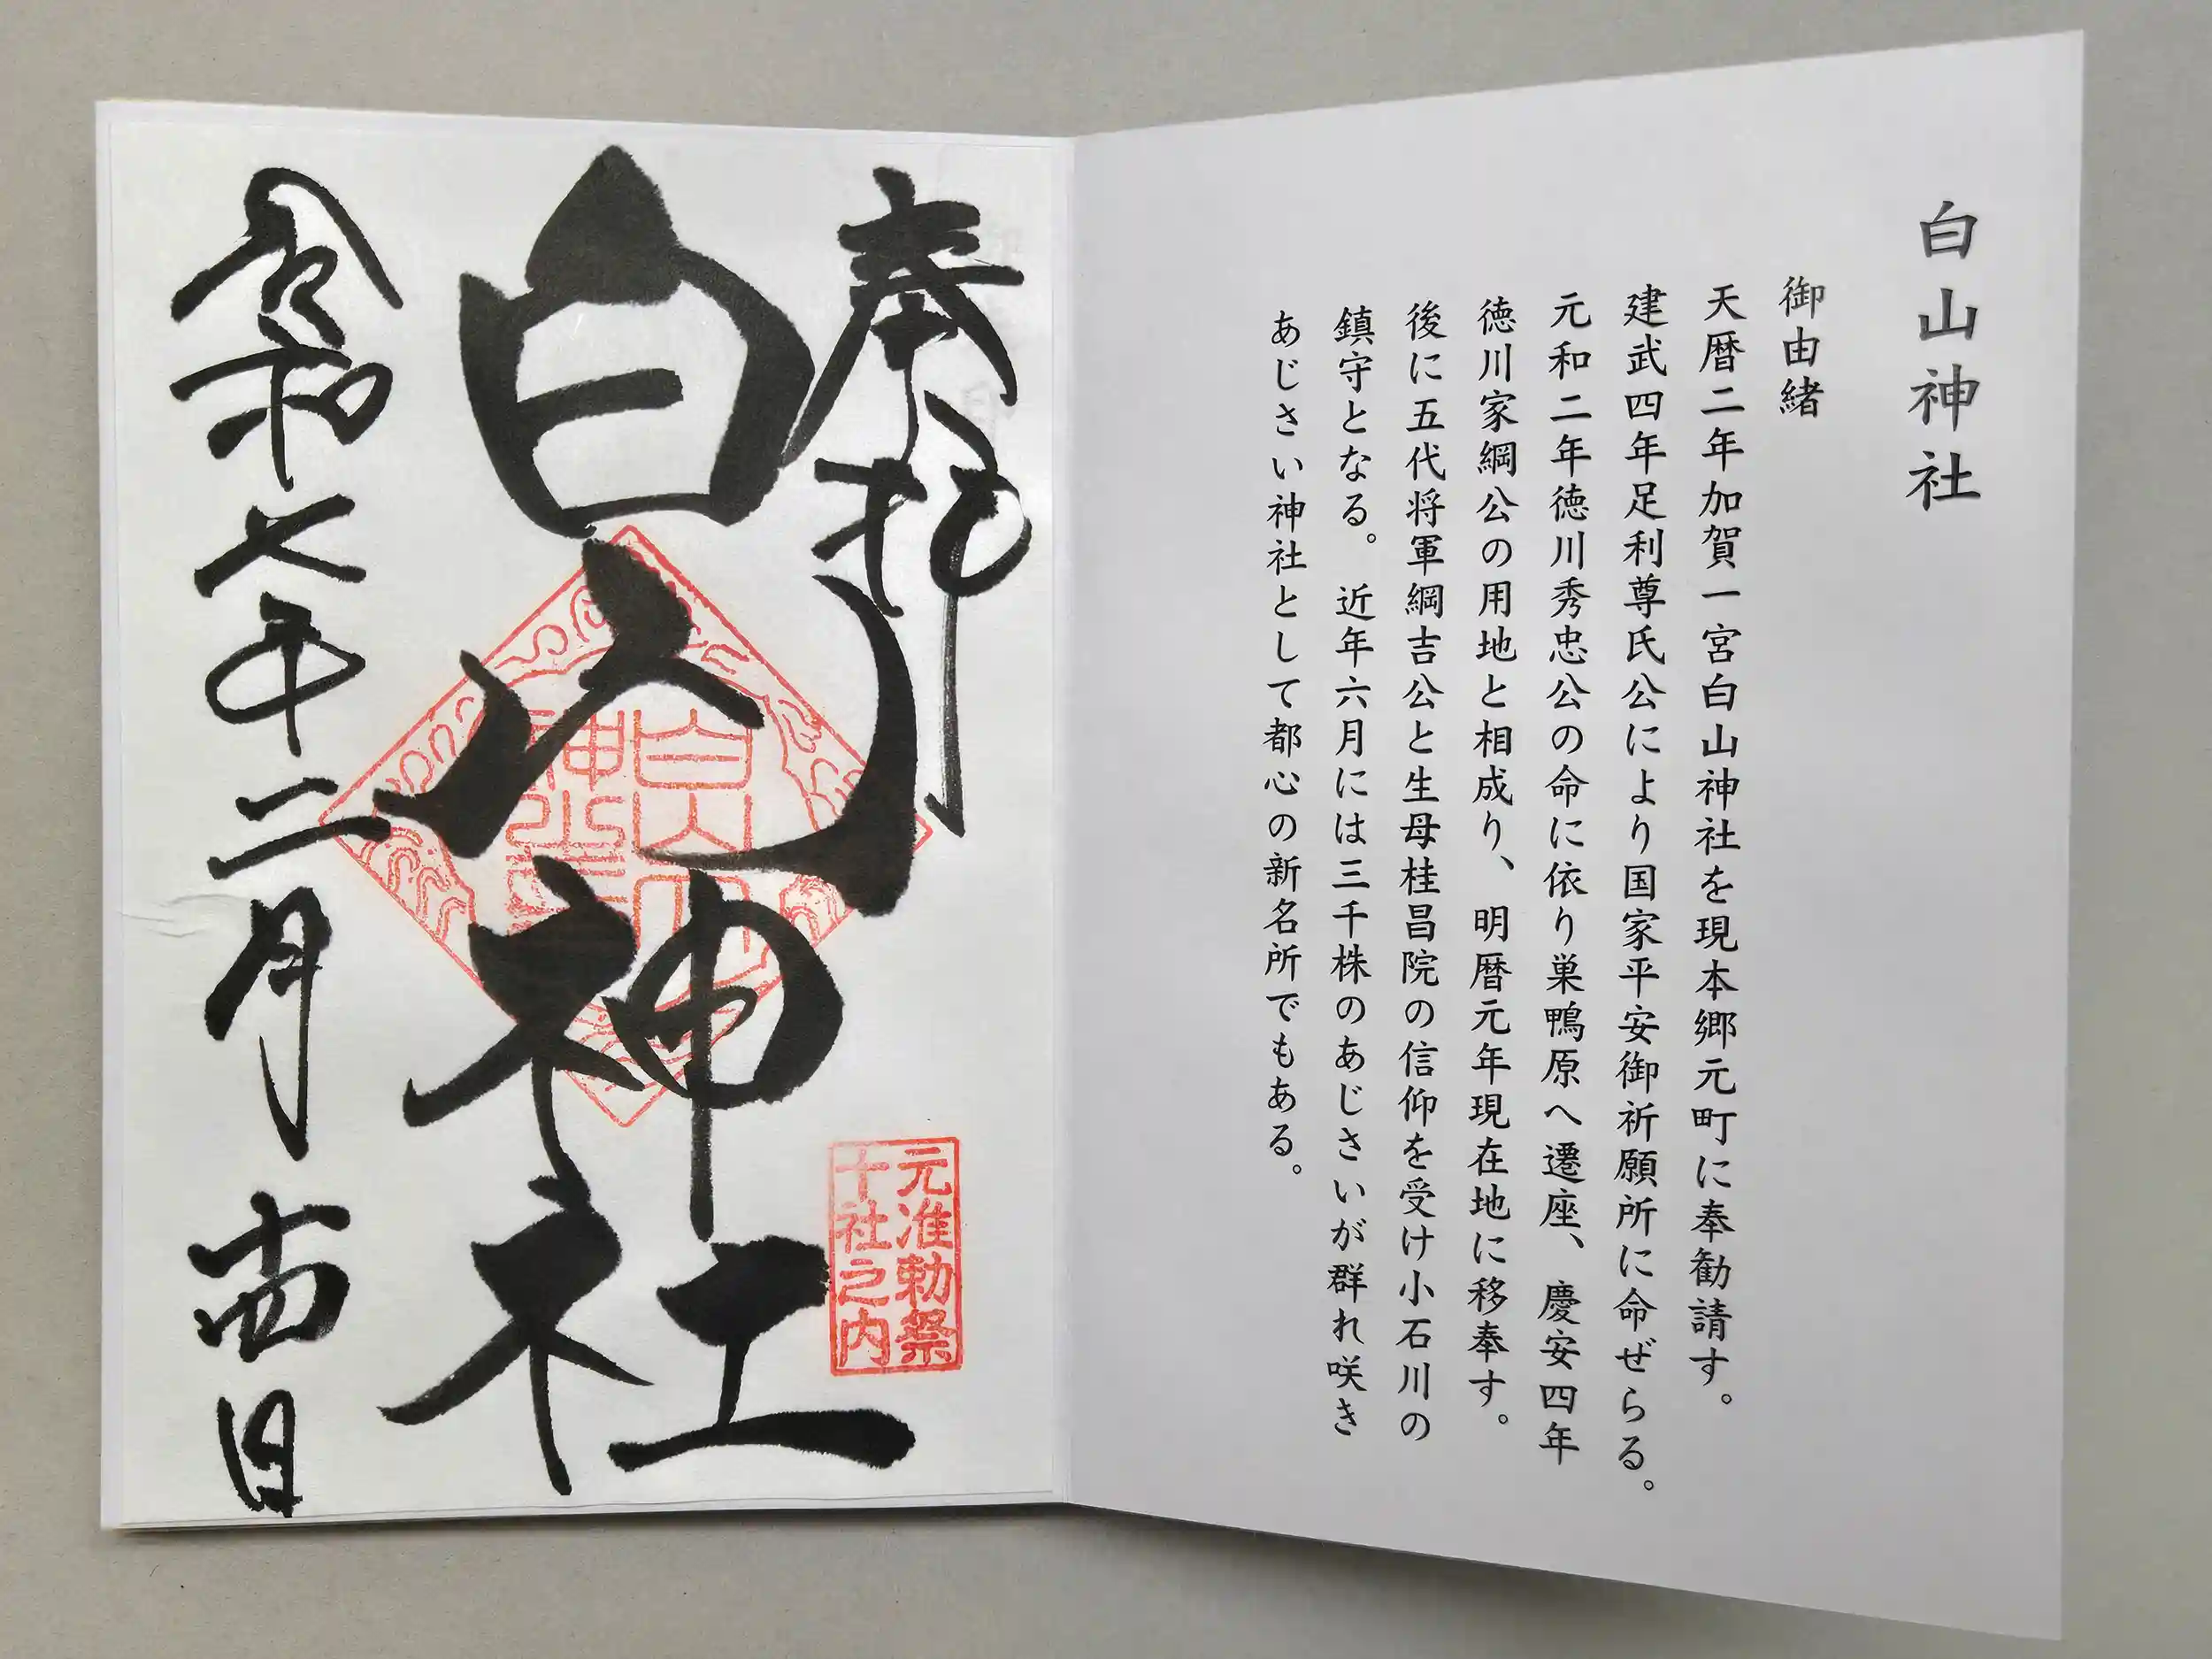 白山神社
御由緒
天暦二年加賀一宮白山神社を現本郷元町に奉勧請す。
建武四年足利尊氏公により国家平安御祈願所に命ぜらる。
元和二年徳川秀忠公の命に依り巣鴨原へ遷座、慶安四年
徳川家綱公の用地と相成り、明暦元年現在地に移奉す。
後に五代将軍綱吉公と生母桂昌院の信仰を受け小石川の
鎮守となる。近年六月には三千株のあじさいが群れ咲き
あじさい神社として都心の新名所でもある。
奉拝
元准勅祭
十社之内
白山神社
令和七年二月廿四日